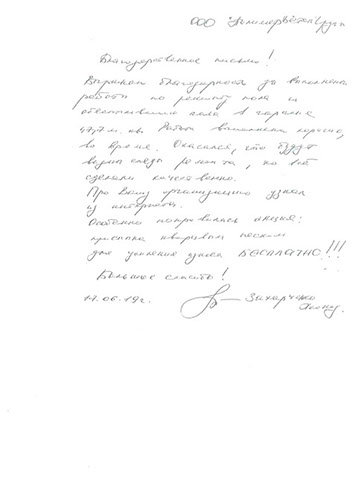 ООО "ПолимерБетонГрупп
Благодарственное письмо!
Выражаю благодарность за выполнение
работы по ремонту пола и
обеспыливанию пола в гараже
47,7 м. кв. Работа выполнена хорошо,
во время. Опасался, что будут
видны следы ремонта, но всё
сделали качественно.
Про Вашу организацию узнал
из интернета.
Особенно понравилась акция:
присыпка кварцевым песком
для усиления износа БЕСПЛАТНО!!!
Большое спасибо!
14.06.19г. Захарченко